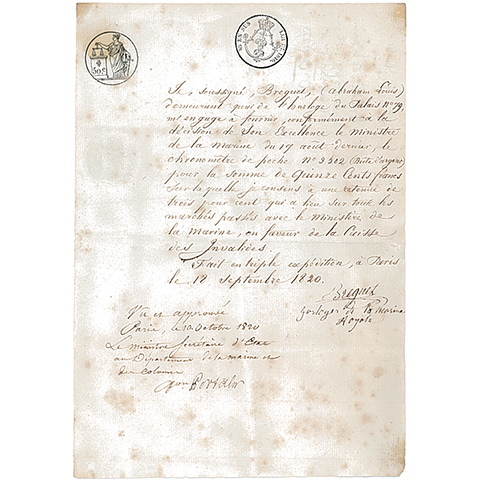 Je, soussigné, Breguet, (Abraham Louis)
demeurant quai de l'horloge du Palais N° 79,
m'engage à fournir, conformément à la
décision de Son Excellence le ministre
de la marine du 17 août dernier, le
chronomètre de poche N° 3302 (Boîte d'argent)
pour la somme de Quinze Cents francs
sur laquelle je consens à une retenue de
trois pour cent qui a lieu sur tous les
marchés passés avec le ministère de
la marine, en faveur de la Caisse
des Invalides.
Fait en triple expédition, à Paris
le 18 Septembre 1820.
Breguet
horloger de la Marine
Royale
Vu et approuvé
Paris, le 10 Octobre 1820
Le Ministre Secrétaire d'Etat
au Département de la marine et
des Colonies
50c